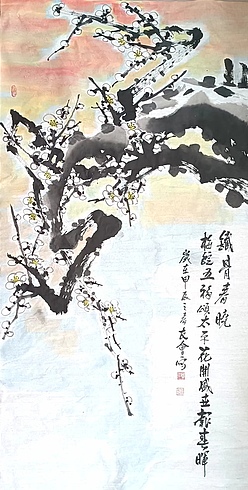 鐵骨春晚
梅綻五福頌太平花開盛世報春暉
歲在甲辰之春